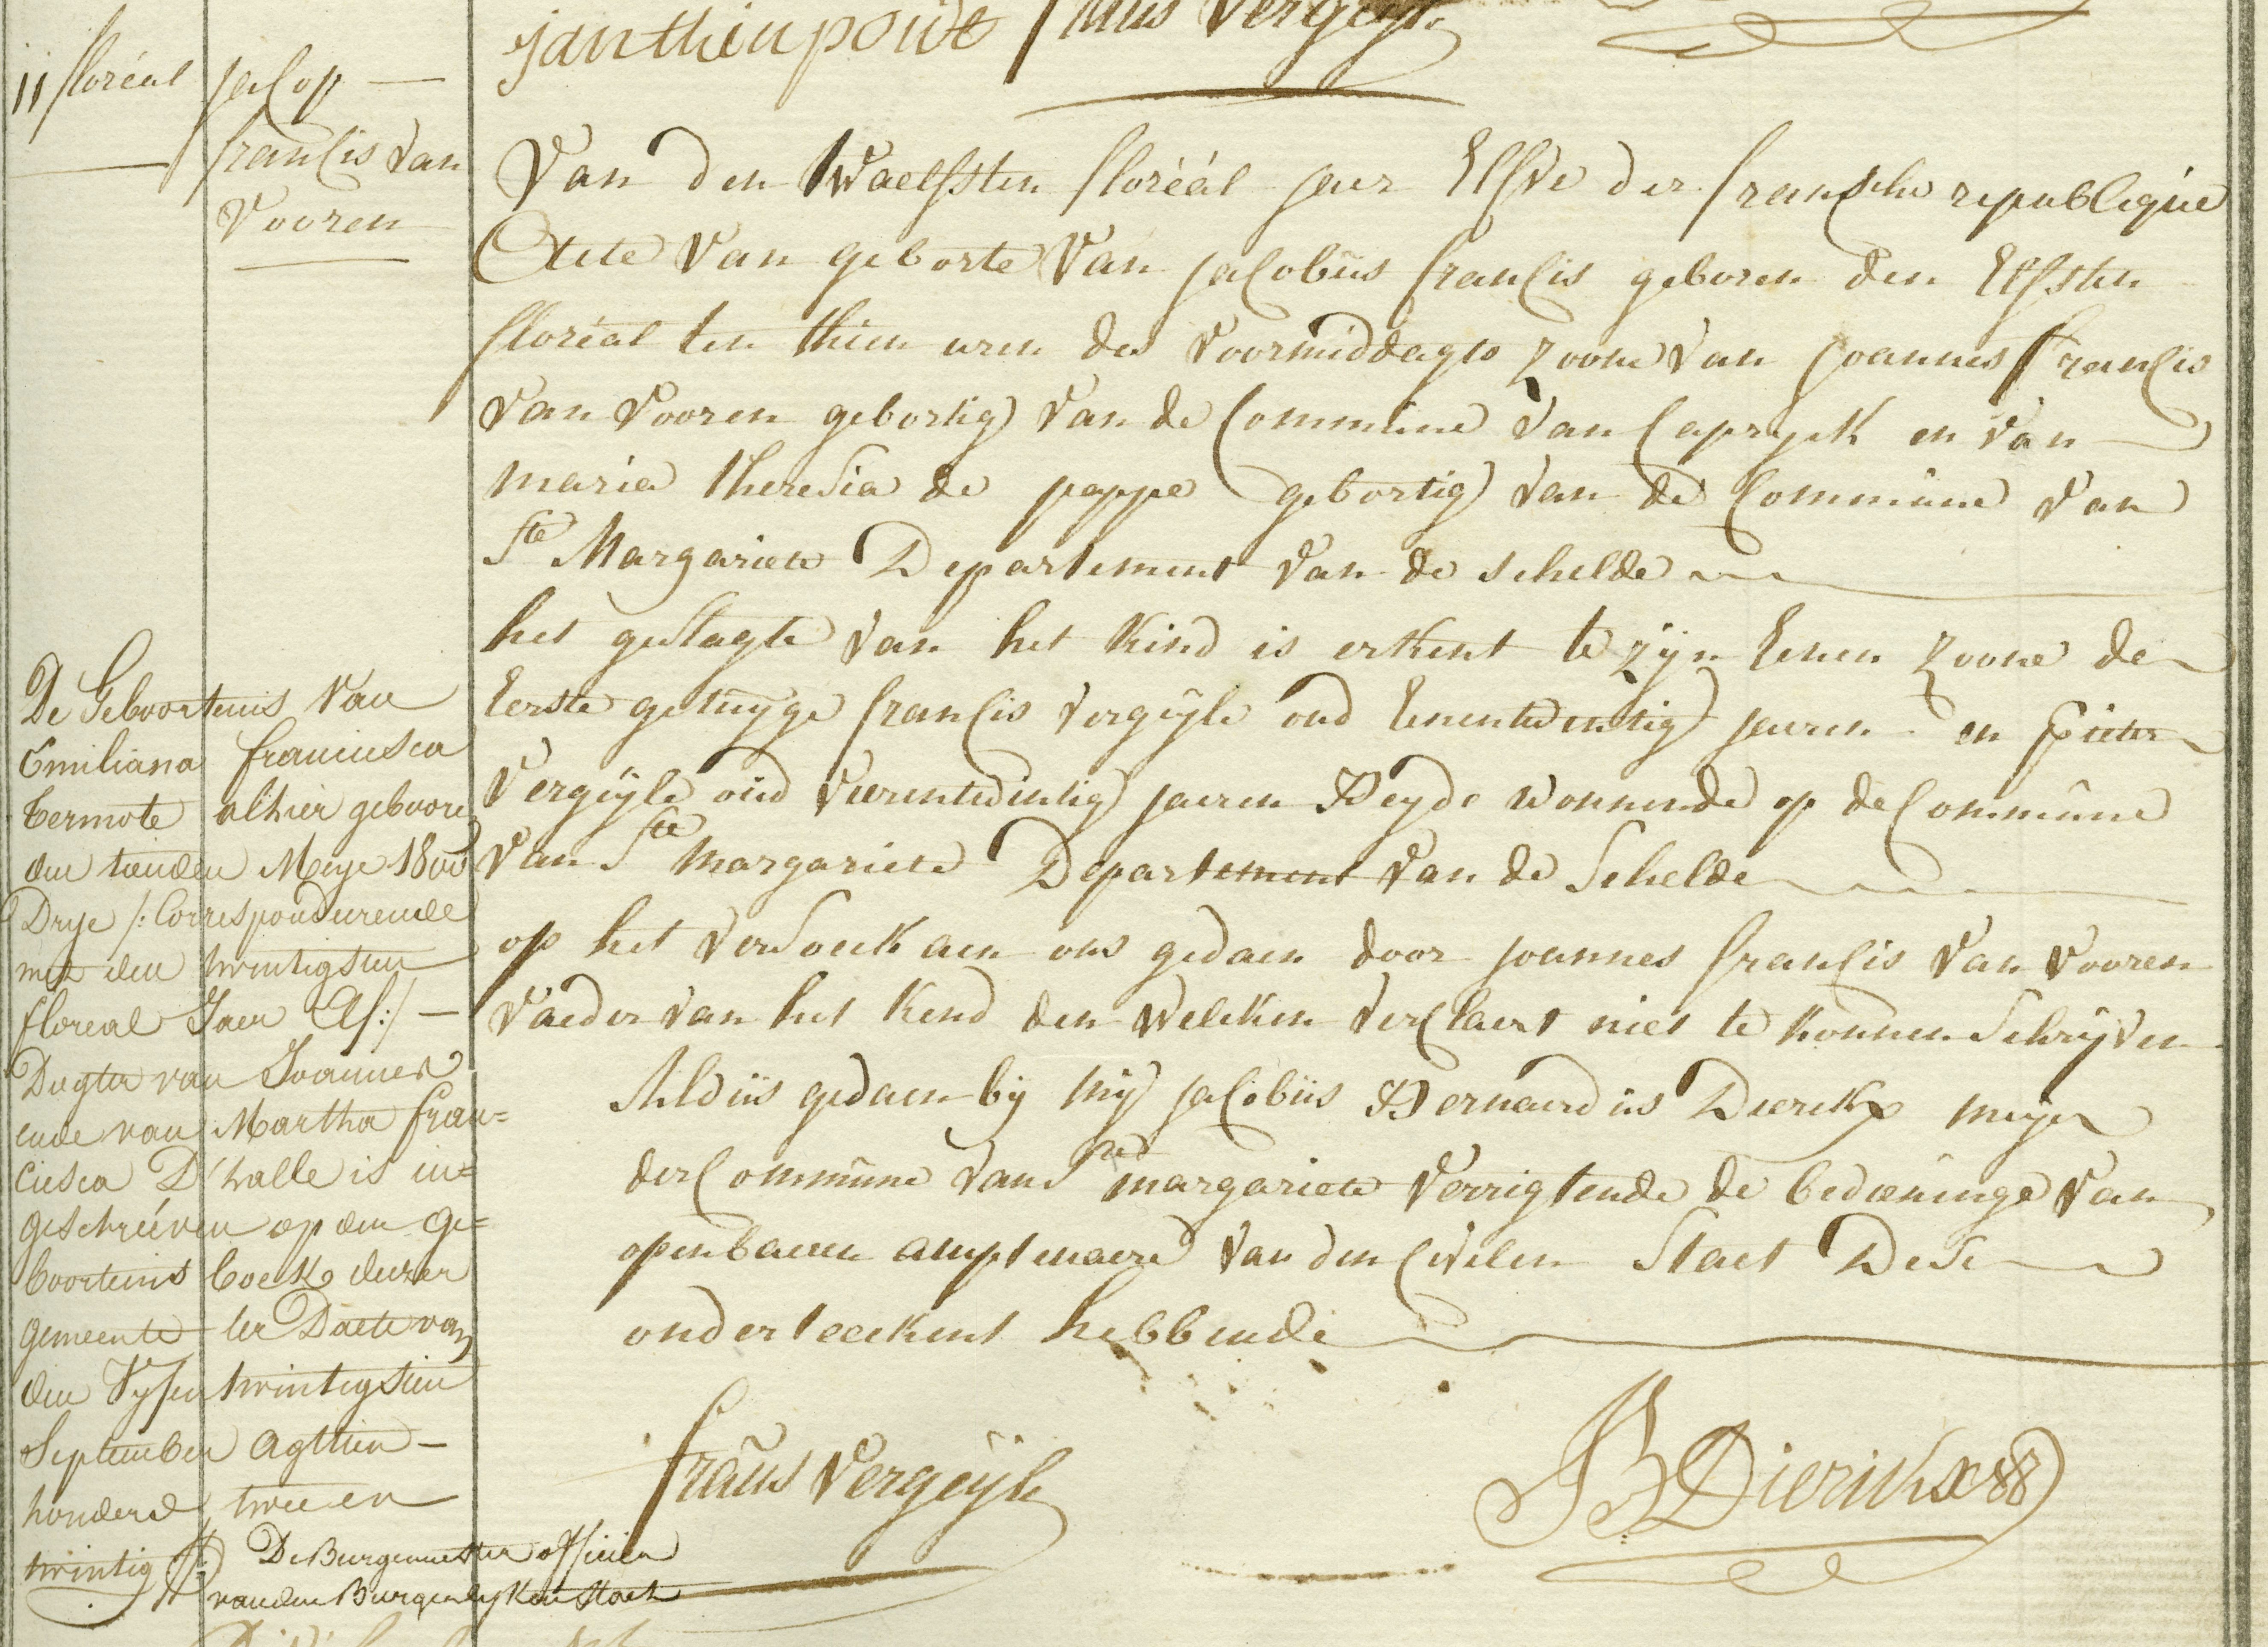 janthienpondt frans Vergeijle
11 floréal
jacop
francis van
Vooren
Van den twaelfsten floréál jaer Elfve der fransche republiqúe
Actete van geborte van jacobús francis geboren den Elfsten
floréal ten thien uren des voormiddaghs zoone van joannes francis
van vooren gebortig van de Commúne van Capryck en van
maria theresia de pappe gebortig van de Commúne van
Ste Margariete Departement van de schelde
het geslagte van het kind is erkent te zijn Eenen zoone de
Eerste getuyge francis vergeijle oud Eenentwintig jaeren en pieter
Vergeijle oúd vierentwintig jaeren Beyde wonnende op de Commúne
van Ste margariete Departement van de Schelde
op het versoeck aen ons gedaen door joannes francis van vooren
vaeder van het kend den welcken verclaert niet te konnen Schrijven
Aldús gedaen bij mij jacobús Bernardús Dierckx meijer
der Commúne van Ste margariete verrigtende de bedieninge van
openbaeren amptenaere van den Civilen Staet Dese
onderteeckent hebbende
frans Vergeijle
JB Dierickx
De Geboortenis van
Emiliana francisca
termote alhier geboore
den tienden Meije 1800
Drye /: Corresponderende
met den twintigsten
floreal Jaer Elf :/ —
Dogter van Joannes
ende van Martha fran=
cisca D'halle is in=
geschreéven op den ge=
boortenis boek dezer
gemeente ter Daete van
den Vyfentwintigsten
September agttien —
honderd twee en
twintig
De Burgemeester officier
van den Burgerlyken Staet